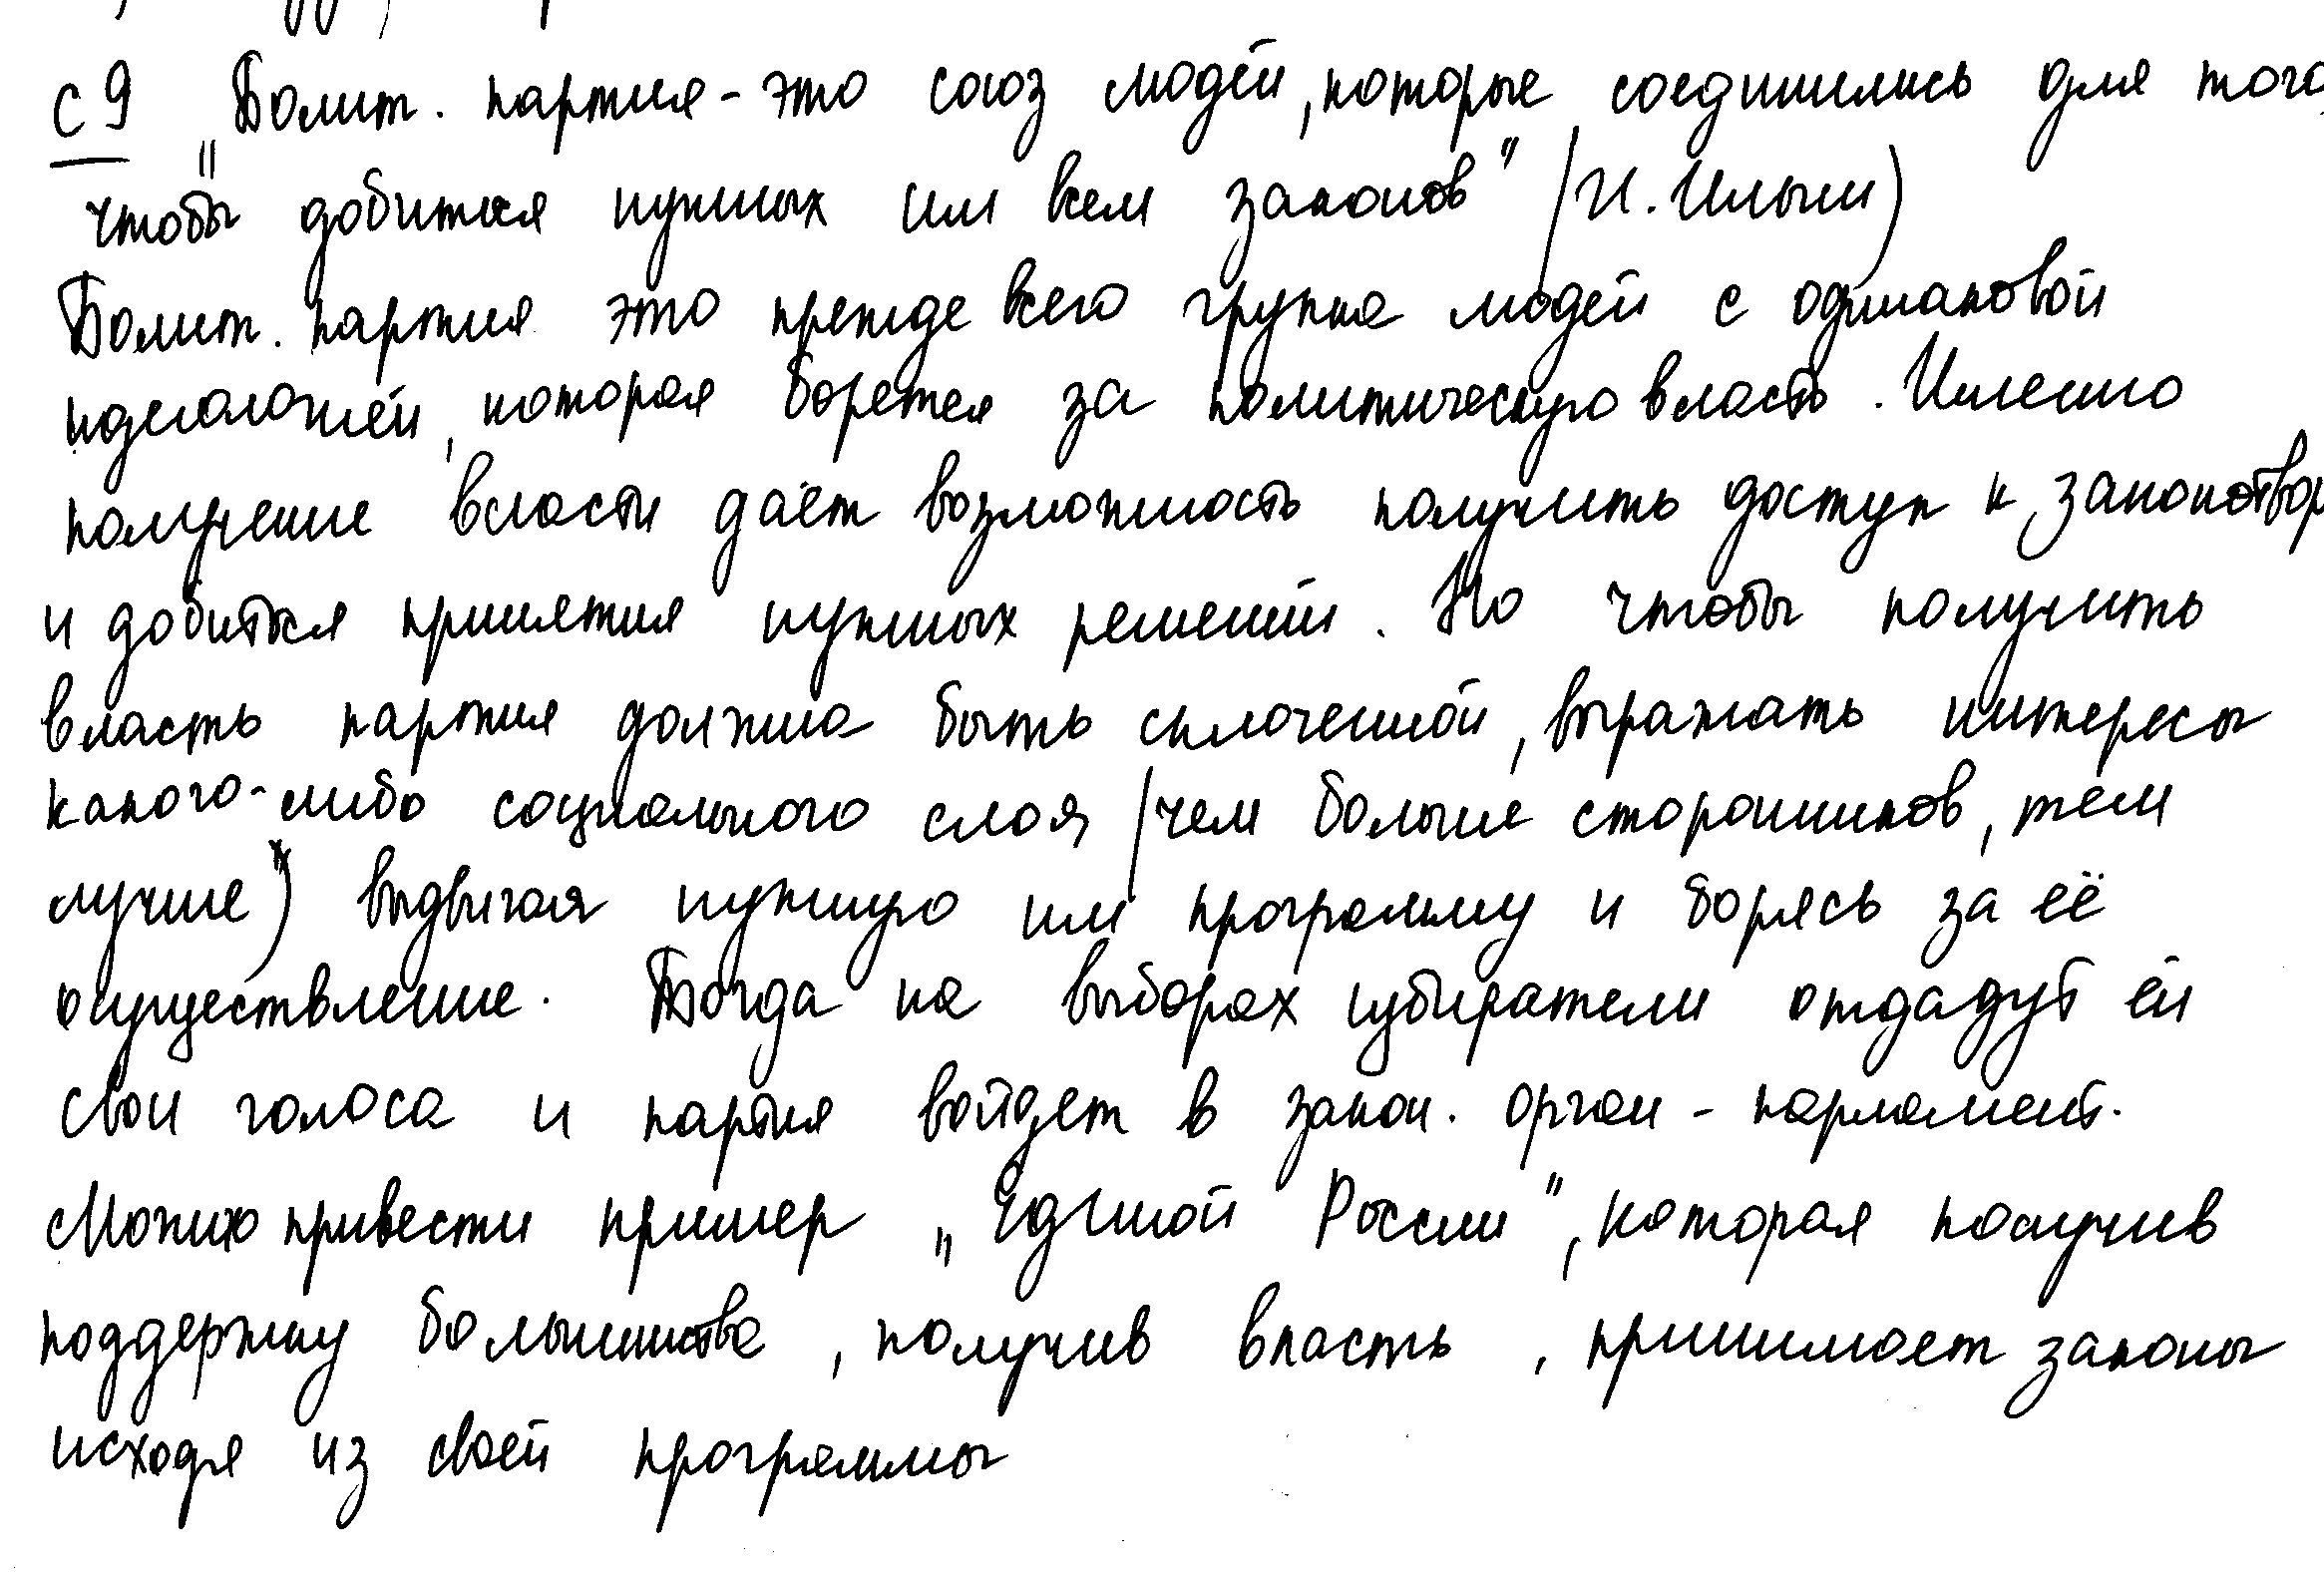 С9 „Полит. партия - это союз людей, которые соединились для того,
чтобы добиться нужных им всем законов" (И. Ильин)
Полит. партия это прежде всего группа людей с одинаковой
идеологией, которая борется за политическую власть. Именно
получение власти даёт возможность получить доступ к законотвор
и добиться принятия нужных решений. Но чтобы получить
власть партия должна быть сплоченной, выражать интересы
какого-либо социального слоя (чем больше сторонников, тем
лучше) выдвигая нужную им программу и борясь за её
осуществление. Тогда на выборах избиратели отдадут ей
свои голоса и партия войдет в закон. орган - парламент.
Можно привести пример „Единой России", которая получив
поддержку большинства, получив власть, принимает законы
исходя из своей программы